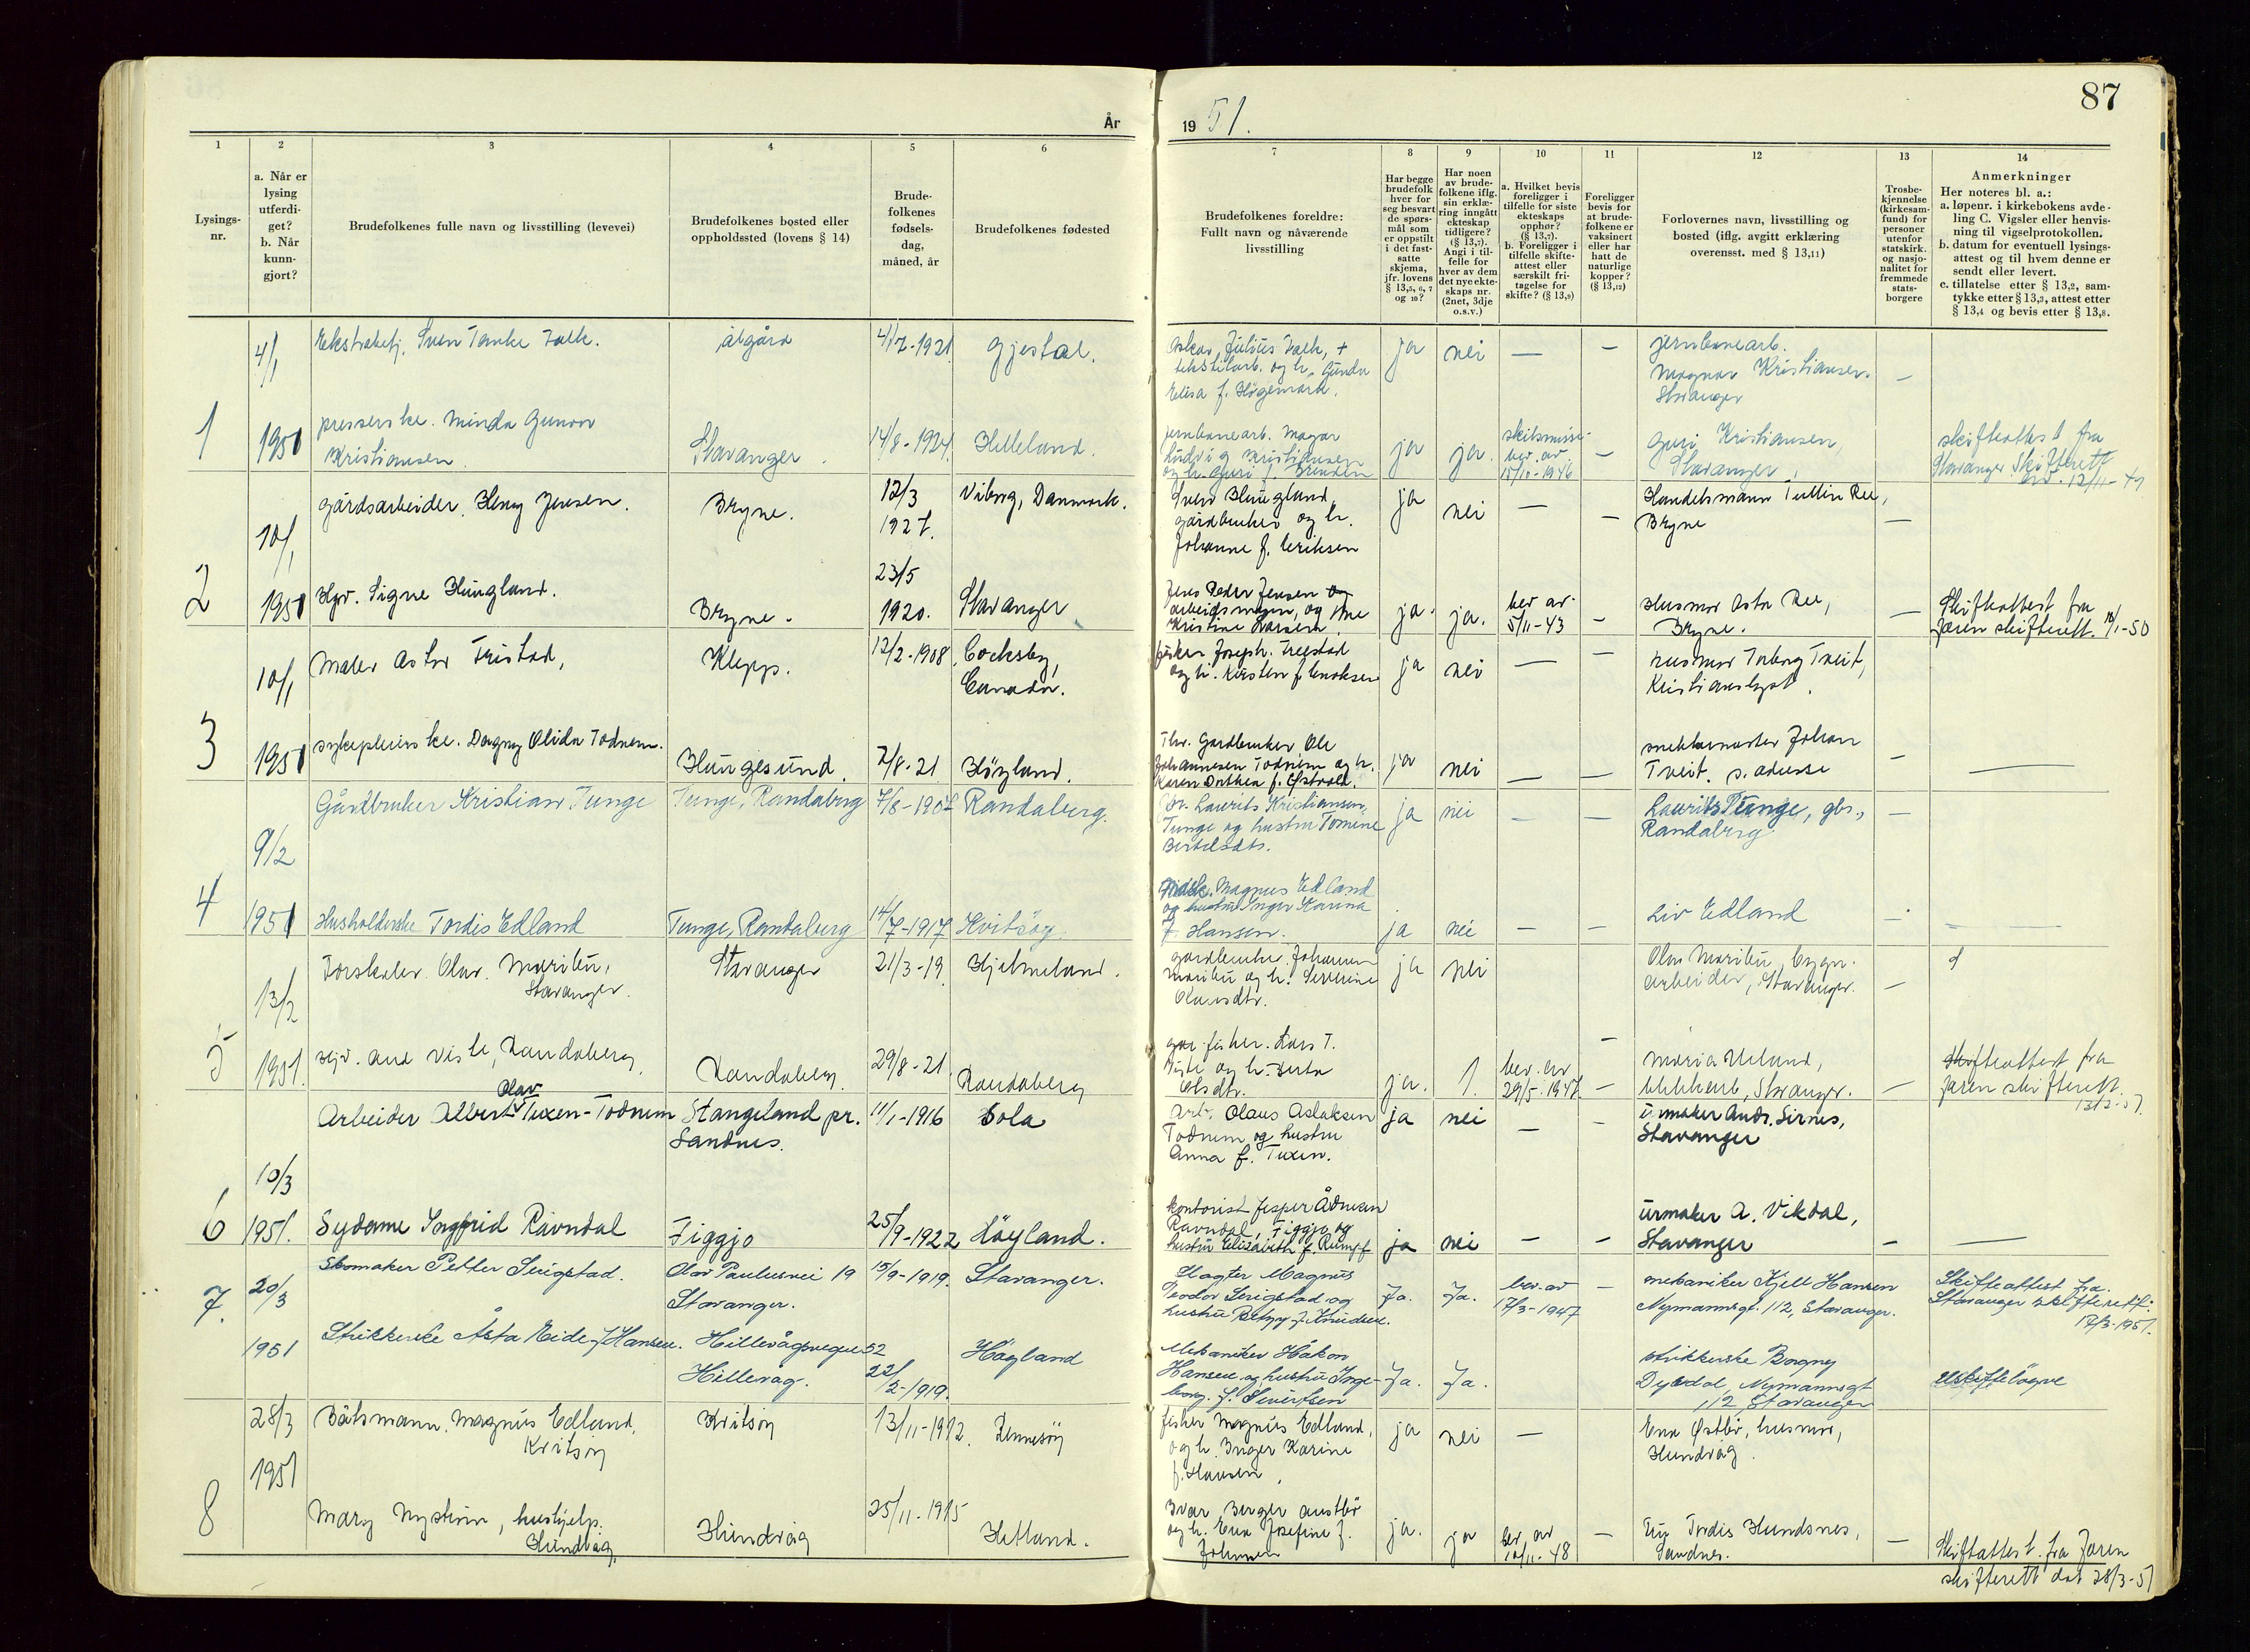 87
År
19 51.
1
2
3
4
5
6
7
8
9
10
11
12
13
14
Lysings-
nr.
a. Når er
lysing
utferdi-
get?
b. Når
kunn-
gjort?
Brudefolkenes fulle navn og livsstilling (levevei)
Brudefolkenes bosted eller
oppholdssted (lovens § 14)
Brude-
folkenes
fødsels-
dag,
måned, år
Brudefolkenes fødested
Brudefolkenes foreldre:
Fullt navn og nåværende
livsstilling
Har begge
brudefolk
hver for
seg besvart
de spørs-
mål som
er oppstilt
i det fast-
satte
skjema,
jfr. lovens
§ 13,5, 6, 7
og 10?
Har noen
av brude-
folkene iflg.
sin erklæ-
ring inngått
ekteskap
tidligere?
(§ 13,7).
Angi i til-
felle for
hver av dem
det nye ekte-
skaps nr.
(2net, 3dje
o.s.v.)
a. Hvilket bevis
foreligger i
tilfelle for siste
ekteskaps
opphør?
(§ 13,7).
b. Foreligger i
tilfelle skifte-
attest eller
særskilt fri-
tagelse for
skifte? (§ 13,8)
Foreligger
bevis for
at brude-
folkene er
vaksinert
eller har
hatt de
naturlige
kopper?
(§ 13,12)
Forlovernes navn, livsstilling og
bosted (iflg. avgitt erklæring
overensst. med § 13,11)
Trosbe-
kjennelse
(kirkesam-
fund) for
personer
utenfor
statskirk.
og nasjo-
nalitet for
fremmede
stats-
borgere
Anmerkninger
Her noteres bl. a.:
a. løpenr. i kirkebokens avde-
ling C. Vigsler eller henvis-
ning til vigselprotokollen.
b. datum for eventuell lysings-
attest og til hvem denne er
sendt eller levert.
c. tillatelse etter § 13,2, sam-
tykke etter § 13,3, attest etter
§ 13,4 og bevis etter § 13,8.
1
4/1
1951
Sven Tanke Falk.
ålgård
Gjestal.
Oskar Julius Falk, +
tekstilarb. og h. Gunda
Elisa f. Högemark.
ja
nei
—
—
jernbanearb.
Magnar Kristiansen.
Stavanger
—
presserske. Minda Gunvor
Kristiansen.
Stavanger
14/8-1924.
Helleland.
jernbanearb. Magnar
Ludvig Kristiansen
og h. Guri f.
ja
ja.
skilsmisse-
bev. av
15/10-1946
—
Guri Kristiansen,
Stavanger.
skifteattest fra
Stavanger Skifterett
2
10/1
1951
gårdsarbeider. Henry Jensen.
Bryne.
12/3
1927.
Viborg, Danmark.
Sven Haugland,
gårdbruker og h.
Johanne f. Eriksen
ja
nei
—
—
Handelsmann Tullin Ree,
Bryne
—
Hjv. Signe Haugland.
Bryne.
23/5
1920.
Stavanger
Jens Peder Jensen
arbeidsmann, og
Kristine Larsen.
ja.
ja.
bev. av
5/11-43
—
Husmor Asta Ree,
Bryne.
—
Skifteattest fra
Jæren skifterett. 10/1-50
3
10/1
1951
Maler Astor Tristad,
Klepp.
12/2-1908
Canada.
fisker Joseph. Treestad
og h. Kirsten f. Enoksen
ja
nei
—
—
husmor Torborg Tveit,
Kristianslyst.
sykepleierske. Dagny Olida Todnem.
Haugesund.
7/8-21
Höyland.
Thv. Gardbruker Ole
Johannesen Todnem og h.
Karen Dorthea f. Østvold.
ja
nei
—
—
snekkermester Johan
Tveit. s. adresse
—
4
9/2
1951
Gårdbruker Kristian Tunge
Tunge, Randaberg
7/8-1907
Randaberg.
Gbr. Laurits Kristiansen
Tunge og hustru Tomine
Bertelsdtr.
ja
nei
—
—
Laurits Tunge, gbr.,
Randaberg
—
Husholderske Tordis Edland
Tunge, Randaberg
14/7-1917
Kvitsöy.
Fisk. Magnus Edland
og hustru Inger Karina
f. Hansen.
ja
nei
—
—
Liv Edland
—
5
13/2
1951.
Torskaler. Olav. Maribu,
Stavanger.
Stavanger
21/3-19.
Hjelmeland.
gardbruker. Johannes
Maribu og h. Severine
Olausdtr.
ja
nei
Olav Maribu, bygn.
arbeider, Stavanger.
—
Hjv. Ane Viste, Randaberg
Randaberg.
29/8-21.
Randaberg
fisker. Lars T.
Viste og h. Berta
Olsdtr.
ja.
1.
bev. av
29/5-1947.
—
Maria Ueland,
Stavanger.
—
Skifteattest fra
Jæren skifterett
13/2-51.
6
10/3
1951.
Arbeider Albert Olav Tuxen-Todnem
Stangeland pr.
Sandnes.
11/1-1916
Sola
arb. Olaus Aslaksen
Todnem og hustru
Anna f. Tuxen.
ja
nei
—
—
Urmaker Andr. Sirnes,
Stavanger
Sydame Ingfrid Ravndal
Figgjo
25/9-1922
Höyland.
kontorist Jesper Ådnesen
Ravndal, Figgjo og
hustru Elisabeth f. Rumpf
ja
nei
—
—
urmaker A. Vikdal,
Stavanger
—
7.
20/3
1951
Skomaker Petter Serigstad.
Olav Paulusvei 19
Stavanger.
15/9-1919.
Stavanger.
Slagter Magnus
Teodor Serigstad og
hustru Betzy f. Knudsen.
Ja.
Ja.
bev. av
17/3-1947
—
mekaniker Kjell Hansen
Nymannsgt. 112, Stavanger.
Skifteattest fra
Stavanger skifterett:
17/3-1951.
Strikkerske Åsta Eide f. Hansen.
Hillevågsveien 52
Hillevåg.
22/2-1919.
Höyland
Mekaniker Håkon
Hansen og hustru Inge-
borg f. Sivertsen
Ja.
Ja.
strikkerske Borgny
Dybdal, Nymannsgt
112 Stavanger
8
28/3
1951
Båtsmann. Magnus Edland,
Kvitsöy
Kvitsöy
13/11-1912.
Rennesöy
fisker Magnus Edland,
og h. Inger Karine
f. Hansen.
ja
nei
—
Ena Østbø, husmor,
Hundvåg.
Mary Nyström, hushjelp.
Hundvåg.
Hundvåg
25/11-1915
Hetland.
Ivar Berger Austbö
og h. Ena Josefine f.
Johnsen
ja.
ja
bev. av
10/11-48
—
Tordis Hundsnes,
Sandnes.
—
Skifteattest. fra Jæren
skifterett dat 28/3-51